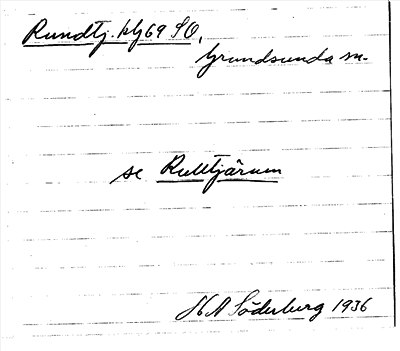 Rundtj. kbl 69 SO,
Grundsunda sn.
se Rulltjärnen
H A Söderberg 1936